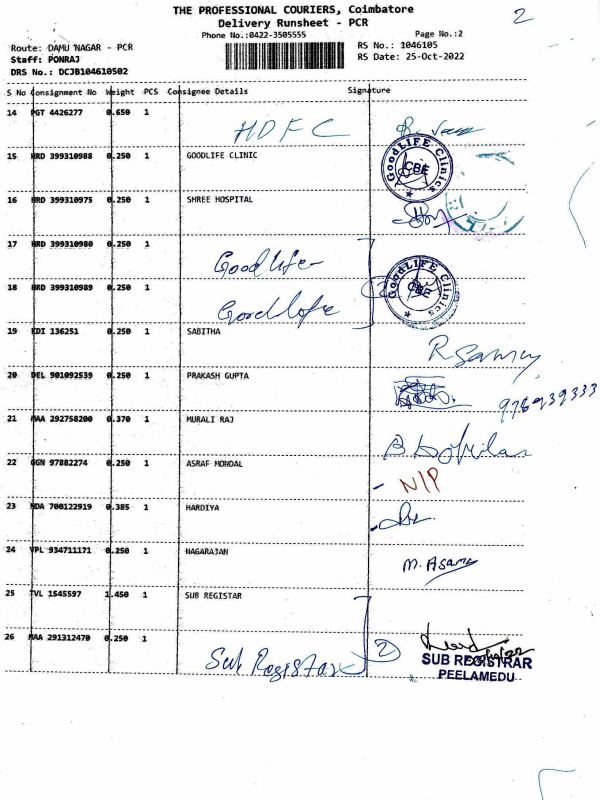 THE PROFESSIONAL COURIERS, Coimbatore
2
Delivery Runsheet - PCR
Phone No.:0422-3505555
Page No.:2
Route: DAMU NAGAR - PCR
RS No.: 1046105
Staff: PONRAJ
RS Date: 25-Oct-2022
DRS No.: DCJB104610502
S No Consignment No Weight PCS Consignee Details Signature
14 PGT 4426277 0.650 1 HDFC
15 HRD 399310988 0.250 1 GOODLIFE CLINIC
GOODLIFE Clinics CBE
16 HRD 399310975 0.250 1 SHREE HOSPITAL
17 HRD 399310980 0.250 1 Goodlife
18 HRD 399310989 0.250 1 Goodlife 2
GOODLIFE Clinics CBE
19 KDI 136251 0.250 1 SABITHA
R Samy
20 DEL 901092539 0.250 1 PRAKASH GUPTA
21 MAA 292758200 0.370 1 MURALI RAJ
22 GGN 97882274 0.250 1 ASRAF MONDAL
- N/P
23 NDA 700122919 0.385 1 HARDIYA
24 VPL 934711171 0.250 1 NAGARAJAN
25 TVL 1545597 1.450 1 SUB REGISTAR
26 MAA 291312470 0.250 1 Sub Registar 2
SUB REGISTRAR
PEELAMEDU